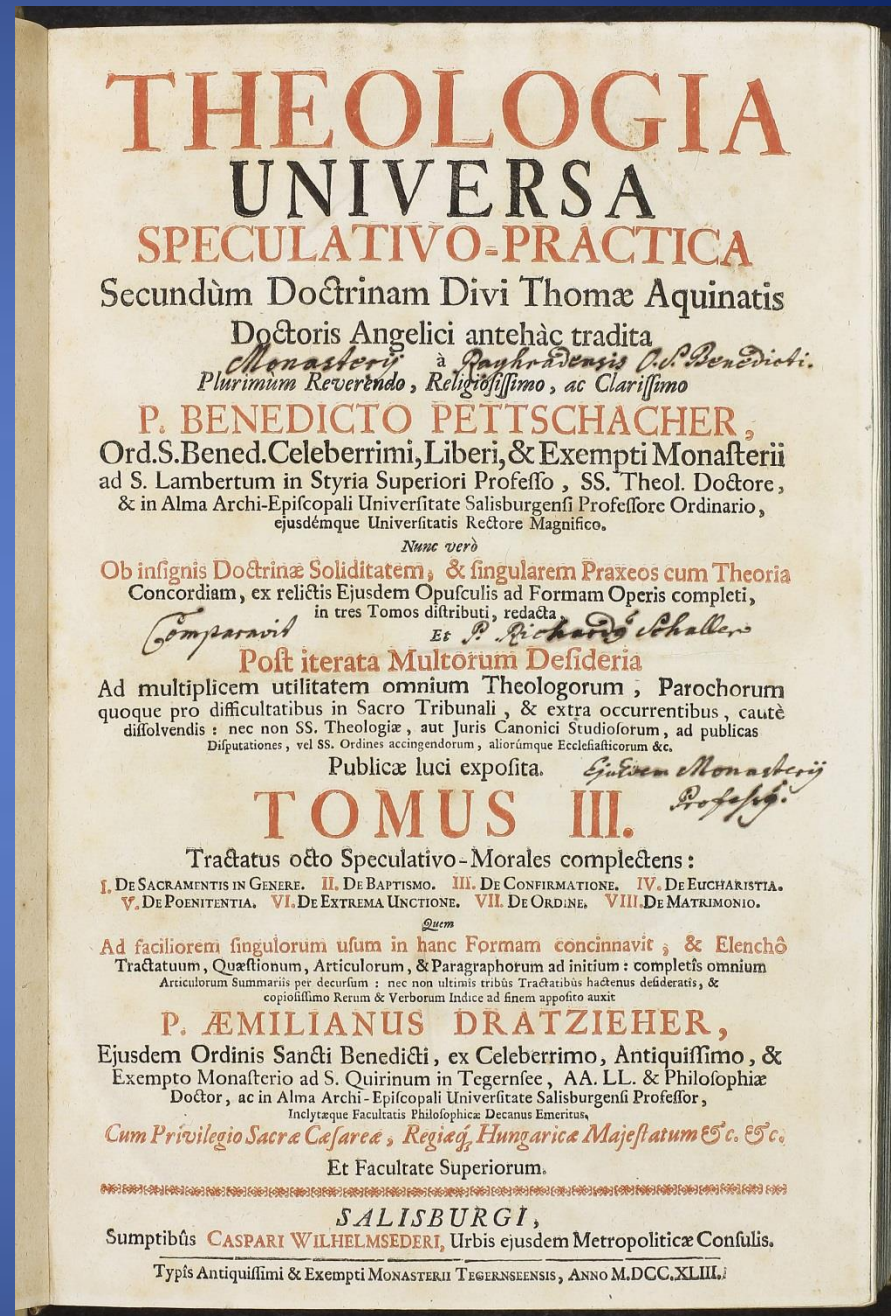 THEOLOGIA
UNIVERSA
SPECULATIVO-PRACTICA
Secundùm Doctrinam Divi Thomæ Aquinatis
Doctoris Angelici antehàc tradita
Monasterij à Rayhradensis O. S. Benedicti.
Plurimùm Reverendo, Religiosissimo, ac Clarissimo
P. BENEDICTO PETTSCHACHER,
Ord.S.Bened.Celeberrimi, Liberi, & Exempti Monasterii
ad S. Lambertum in Styria Superiori Professo, SS. Theol. Doctore,
& in Alma Archi-Episcopali Universitate Salisburgensi Professore Ordinario,
ejusdémque Universitatis Rectore Magnifico.
Nunc verò
Ob insignis Doctrinæ Soliditatem, & singularem Praxeos cum Theoria
Concordiam, ex relictis Ejusdem Opusculis ad Formam Operis completi,
in tres Tomos distributi, redacta,
Comparavit Et P. Richardg Schaller
Post iterata Multorum Desideria
Ad multiplicem utilitatem omnium Theologorum, Parochorum
quoque pro difficultatibus in Sacro Tribunali, & extra occurrentibus, cautè
dissolvendis: nec non SS. Theologiæ, aut Juris Canonici Studiosorum, ad publicas
Disputationes, vel SS. Ordines accingendorum, aliorúmque Ecclesiasticorum &c.
Publicæ luci exposita. Ejusdem Monasterij
Professg.
TOMUS III.
Tractatus octo Speculativo-Morales complectens:
I. DE SACRAMENTIS IN GENERE. II. DE BAPTISMO. III. DE CONFIRMATIONE. IV. DE EUCHARISTIA.
V. DE POENITENTIA. VI. DE EXTREMA UNCTIONE. VII. DE ORDINE. VIII. DE MATRIMONIO.
Quem
Ad faciliorem singulorum usum in hanc Formam concinnavit, & Elenchô
Tractatuum, Quæstionum, Articulorum, & Paragraphorum ad initium: completîs omnium
Articulorum Summariis per decursum: nec non ultimis tribùs Tractatibùs hactenus desideratis, &
copiosissimo Rerum & Verborum Indice ad finem apposito auxit
P. ÆMILIANUS DRATZIEHER,
Ejusdem Ordinis Sancti Benedicti, ex Celeberrimo, Antiquissimo, &
Exempto Monasterio ad S. Quirinum in Tegernsee, AA. LL. & Philosophiæ
Doctor, ac in Alma Archi-Episcopali Universitate Salisburgensi Professor,
Inclytæque Facultatis Philosophicæ Decanus Emeritus,
Cum Privilegio Sacræ Cæsareæ, Regiæq́; Hungaricæ Majestatum &c. &c.
Et Facultate Superiorum.
SALISBURGI,
Sumptibûs CASPARI WILHELMSEDERI, Urbis ejusdem Metropoliticæ Consulis.
Typîs Antiquissimi & Exempti MONASTERII TEGERNSEENSIS, ANNO M.DCC.XLIII.